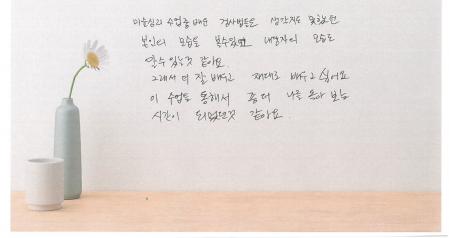 미술심리 수업중 배운 검사법들은 생각지도 못했던
본인의 모습을 볼수있었고 내담자의 모습도
알수 있는것 같아요.
그래서 더 잘 배우고 제대로 배우고 싶어요
이 수업을 통해서 좀 더 나를 돌아 보는
시간이 되었던것 같아요.